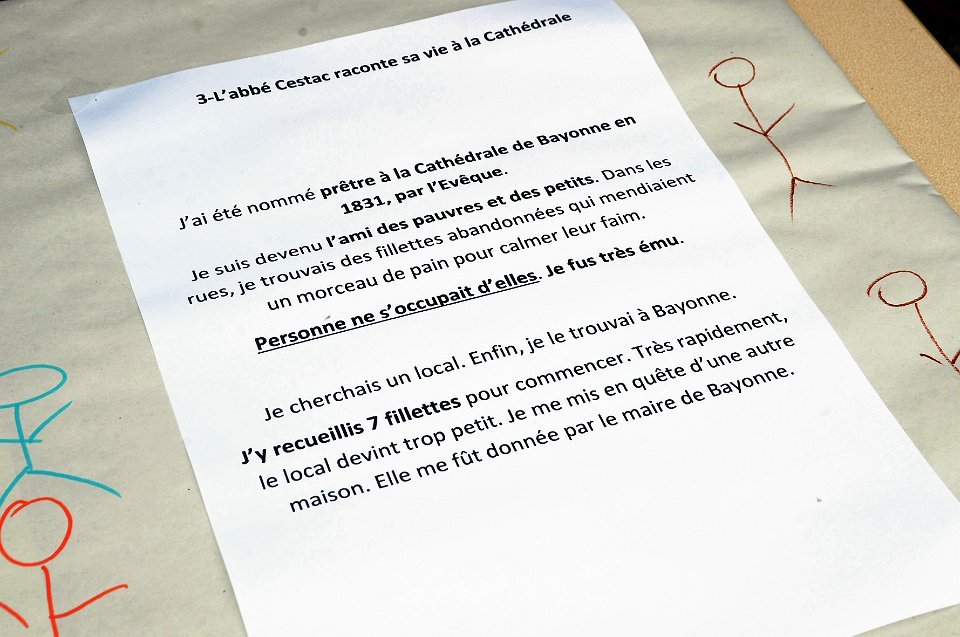 3-L'abbé Cestac raconte sa vie à la Cathédrale
J'ai été nommé prêtre à la Cathédrale de Bayonne en
1831, par l'Evêque.
Je suis devenu l'ami des pauvres et des petits. Dans les
rues, je trouvais des fillettes abandonnées qui mendiaient
un morceau de pain pour calmer leur faim.
Personne ne s'occupait d'elles. Je fus très ému.
Je cherchais un local. Enfin, je le trouvai à Bayonne.
J'y recueillis 7 fillettes pour commencer. Très rapidement,
le local devint trop petit. Je me mis en quête d'une autre
maison. Elle me fût donnée par le maire de Bayonne.